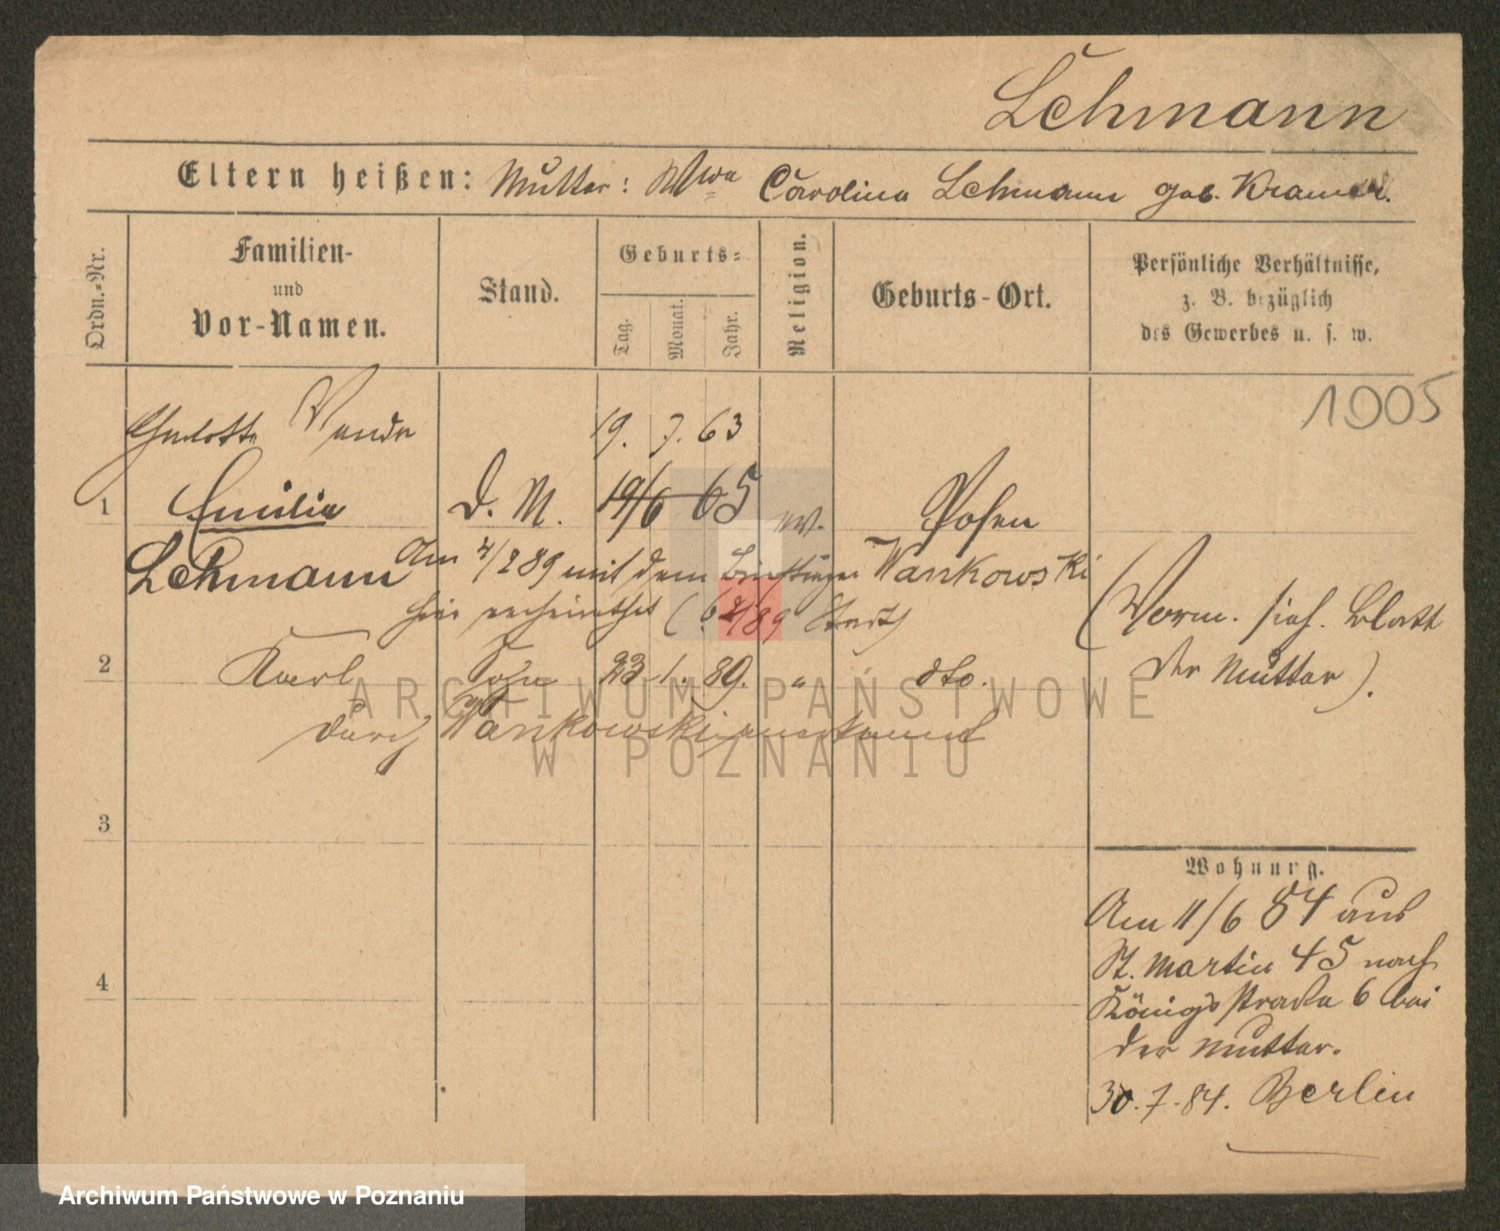 Lehmann
Eltern heißen: Mutter: Wwe Caroline Lehmann geb. Kramer.
Ordn.-Nr.
Familien-
und
Vor-Namen.
Stand.
Geburts-
Tag.
Monat.
Jahr.
Religion.
Geburts-Ort.
Persönliche Verhältnisse,
z. B. bezüglich
des Gewerbes u. s. w.
1905
Charlotte Wanda 19. 7. 63
1 Emilie D. M. 19/6 65 ev. Posen
Lehmann Am 4/2 89 mit dem Wankowski
hier verheirathet ( 89 Start)
(Verm. sieh. Blatt
der Mutter).
2 Karl Sohn 23 1. 89. " dto.
durch Wankowski anerkannt
3
4
Wohnung.
Am 11/6 84 aus
St. Martin 45 nach
Königsstraße 6 bei
der Mutter.
30. 7. 84. Berlin
ARCHIWUM PAŃSTWOWE
W POZNANIU
Archiwum Państwowe w Poznaniu